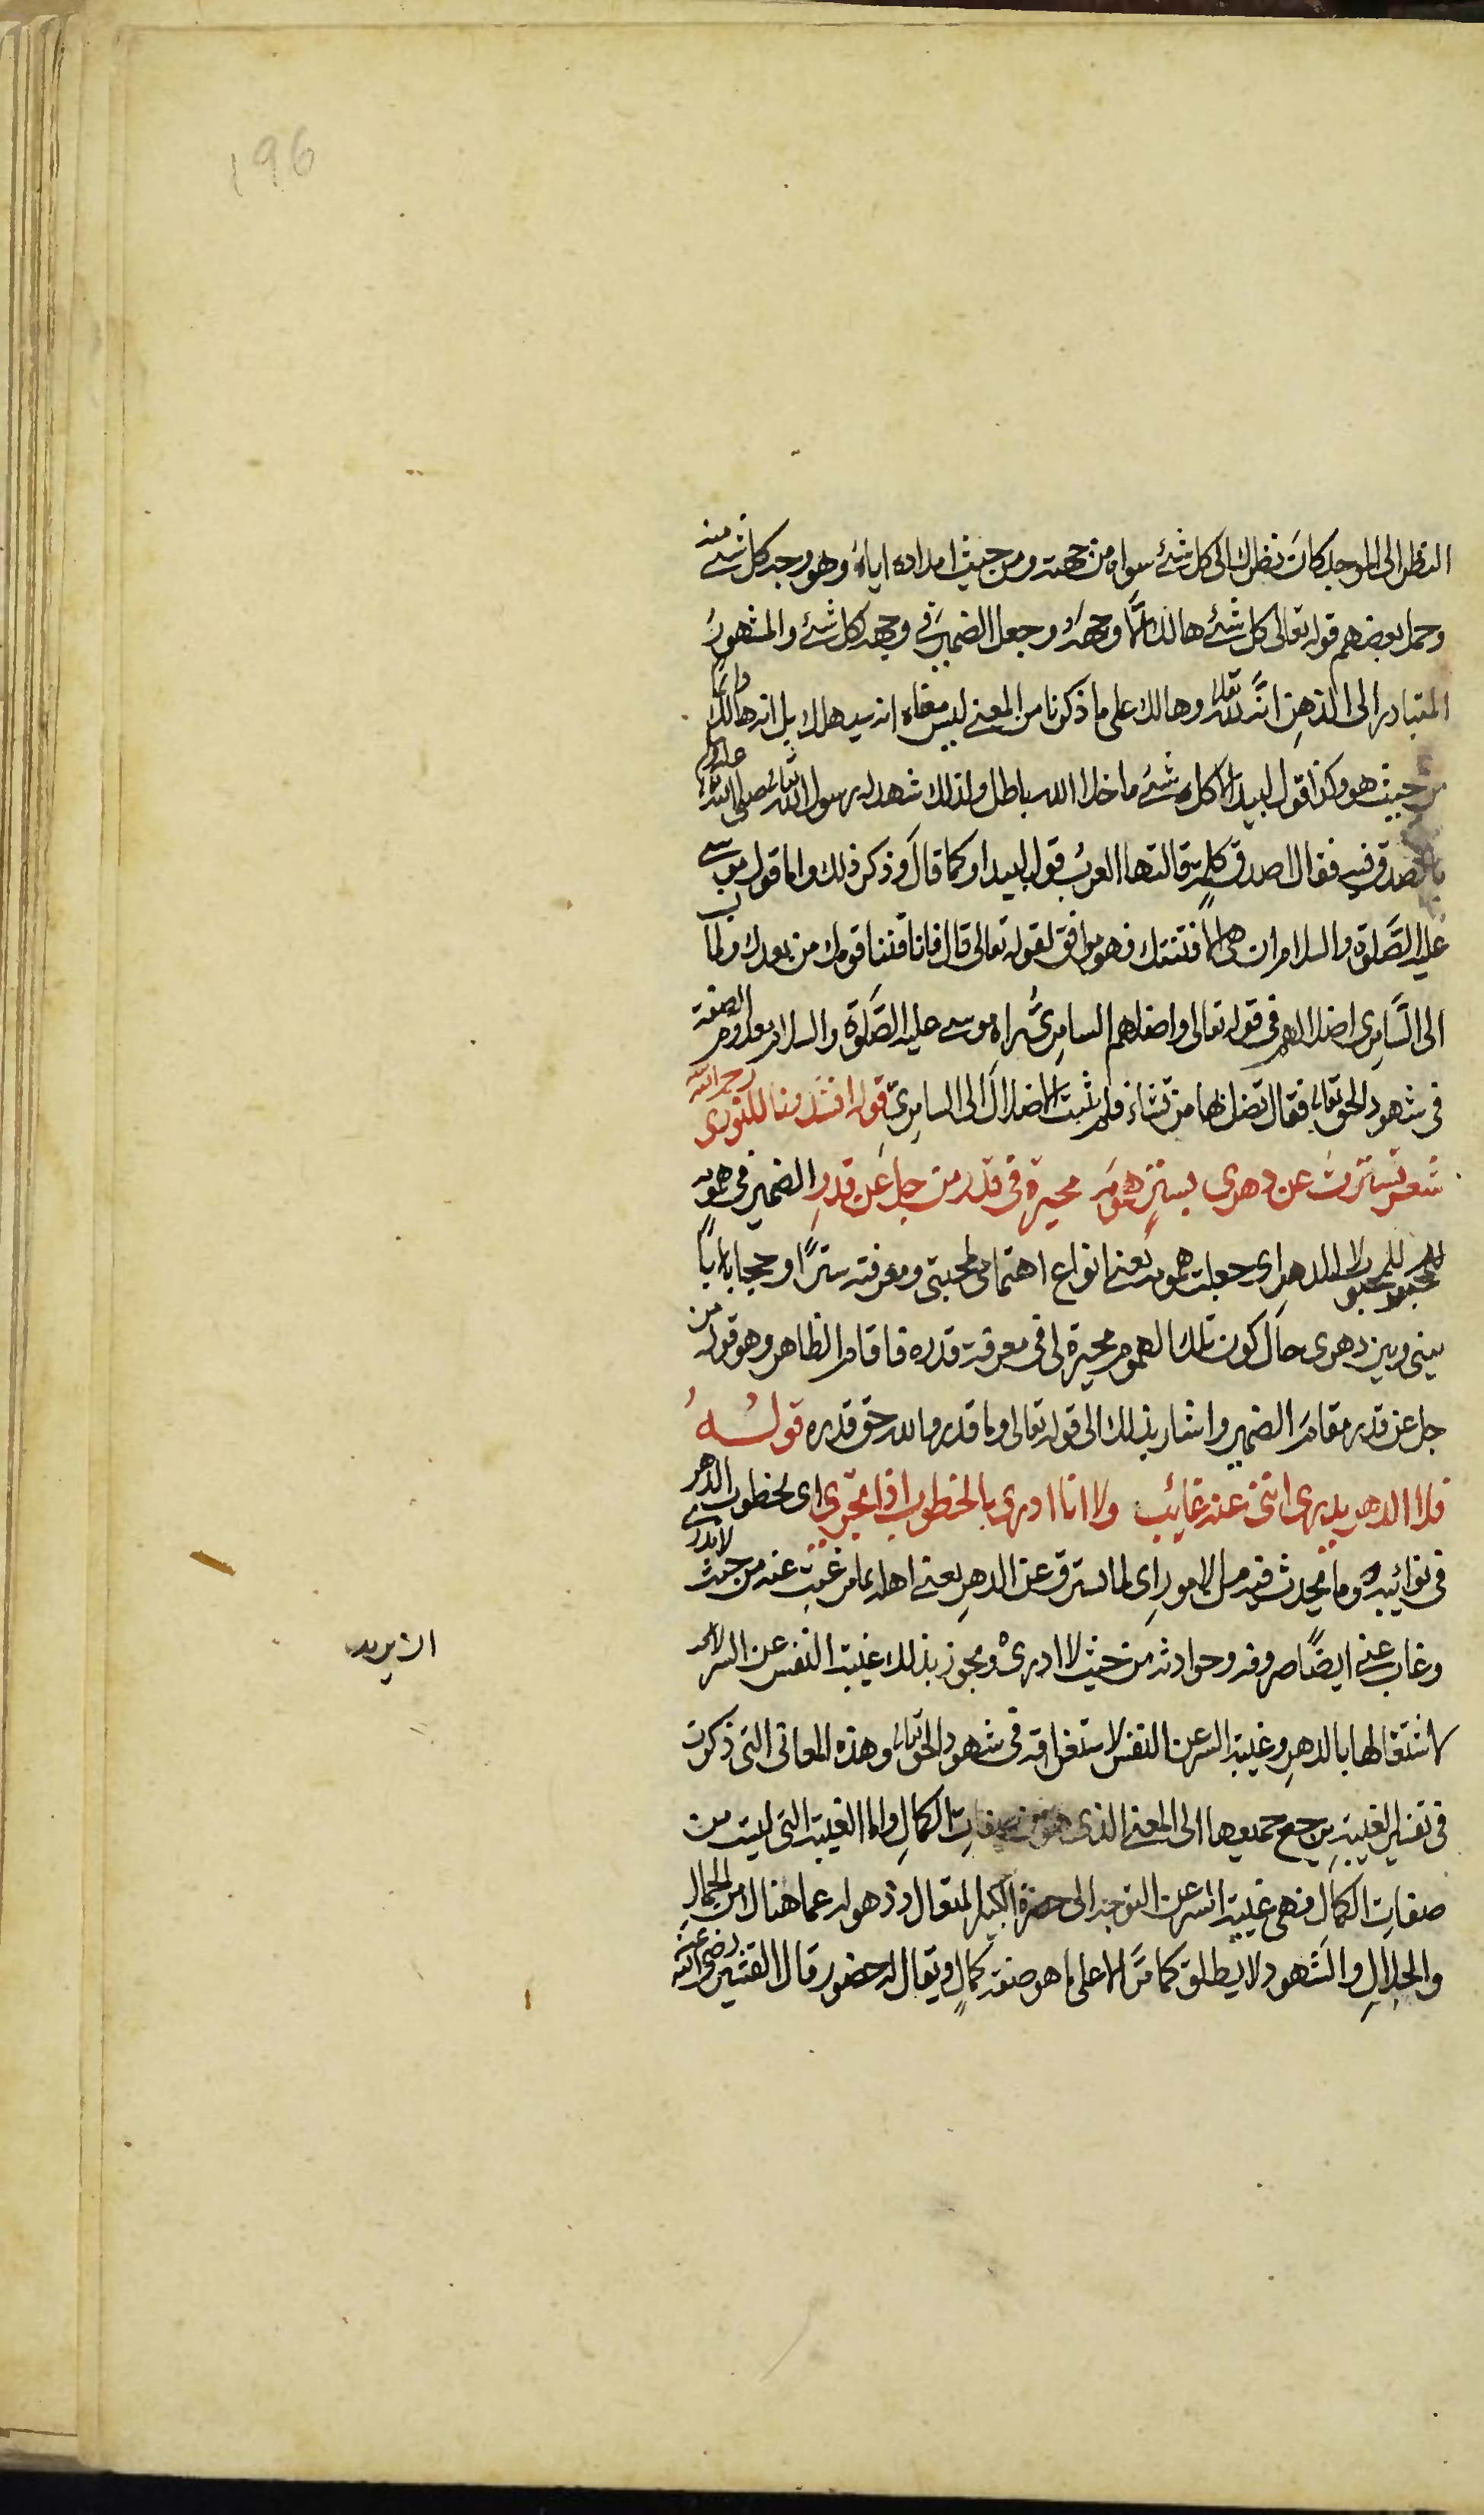 196
النظر الى الموجد كان نظرك الى كل شئ سواه من جهته ومن حيث امداده اياه وهو وجه كل شئ منه
وحمل بعضهم قوله تعالى كل شئ هالك الا وجهه وجعل الضمير في وجهه لكل شئ والمشهور
المتبادر الى الذهن انه لله تعالى وهالك على ما ذكرنا من المعنى ليس معناه انه سيهلك بل انه هالك
من حيث هو وكذا قول لبيد الا كل شئ ما خلا الله باطل ولذلك شهد له رسول الله صلى الله عليه وسلم
بالصدق فيه فقال اصدق كلمة قالتها العرب قول لبيد او كما قال وذكر ذلك واما قول موسى
عليه الصلوة والسلام ان هى الا فتنتك فهو موافق لقوله تعالى قال فانا قد فتنا قومك من بعدك ولما نسب
الى السامرى اضلالهم في قوله تعالى واضلهم السامرى راه موسى عليه الصلوة والسلام معدوم الصفة
في شهود الحق تعالى فقال تضل بها من تشاء فلم يثبت الاضلال الى السامرى قوله انشدونا للنورى رحمه الله
شعر تسترت عن دهرى بستر همومه محيرة في قدر من جل عن قدر الضمير في همومه
للمحبوب لا للدهر اى جعلت همومه يعنى انواع اهتمامى لمحبتى ومعرفته سترا وحجابا
بينى وبين دهرى حال كون تلك الهموم محيرة لى في معرفة قدره فاقام الظاهر وهو قوله من
جل عن قدر مقام الضمير واشار بذلك الى قوله تعالى وما قدروا الله حق قدره قوله
فلا الدهر يدرى اننى عنه غائب ولا انا ادرى بالخطوب اذا تجرى اى بخطوب الدهر
في نوائبه وما يحدث فيه من الامور اى لما استرق عن الدهر يعنى اهله بما غبت عنه من حيث لا يدرى
وغاب عنى ايضا صروفه وحوادثه من حيث لا ادرى ويجوز بذلك غيبة النفس عن السر
لاشتغالها بالدهر وغيبة السر عن النفس لاستغراقه في شهود الحق تعالى وهذه المعانى التى ذكرت
في تفسير الغيبة يرجع جميعها الى المعنى الذى هو من صفات الكمال واما الغيبة التى ليست من
صفات الكمال فهى غيبة السر عن التوجه الى حضرة الكبير المتعال وذهوله عما هنالك من الجمال
والجلال والشهود لا يطلق كما مر الا على ما هو صفة كمال ويقال له حضور قال القشيرى رضى الله عنه